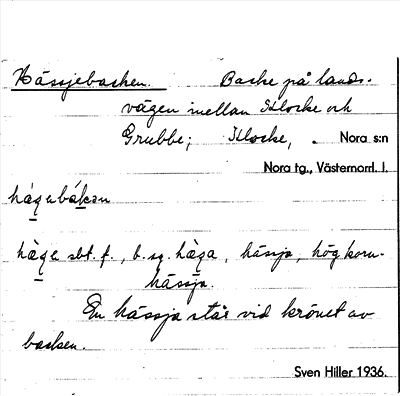 Hässjebacken. Backe på lands-
vägen mellan Klocke och
Grubbe; Klocke, . Nora s:n
Nora tg., Västernorrl. l.
hägebákan
hæ̀ge sbt. f., b. sg. hæ̀ga, hässja, hög korn-
hässja.
En hässja står vid krönet av
backen.
Sven Hiller 1936.